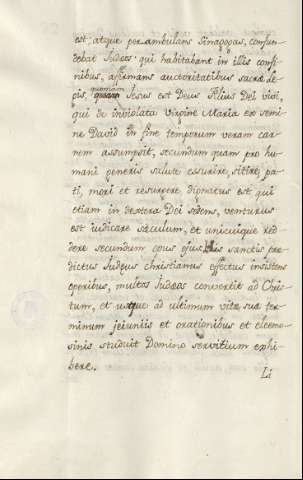 est, atque perambulans Sinagogas, confun
debat Judeos qui habitabant in illis confi
nibus, affirmans auctoritatibus sacræ le
gis, quoniam Jesus est Deus Filius Dei vivi,
qui de inviolata Virgine Maria ex semi
ne David in fine temporum veram car
nem assumpsit, secundum quam pro hu
mani generis salute esurire, sitire, pa
ti, mori et resurgere dignatus est qui
etiam in dextera Dei sedens, venturus
est iudicare sæculum, et unicuique red
dere secundum opus ejus. Hic sanctus præ
dictus Judeus christianus effectus insistens
operibus, multos Judæos convertit ad Chris
tum, et usque ad ultimum vitæ suæ ter
minum jejuniis et orationibus et eleemo
sinis studuit Domino servitium exhi
bere.
Li